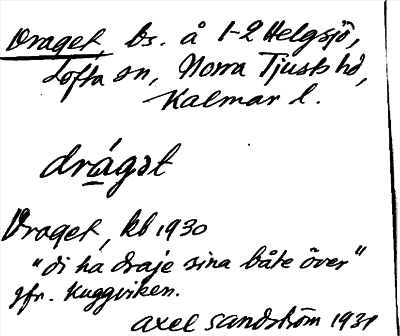 Draget, bs. å 1-2 Helgsjö,
Lofta sn, Norra Tjusts hd,
Kalmar l.
drágət
Draget, kb 1930
"di ha draje sina båte över"
jfr. Kuggviken.
Axel Sandström 1931